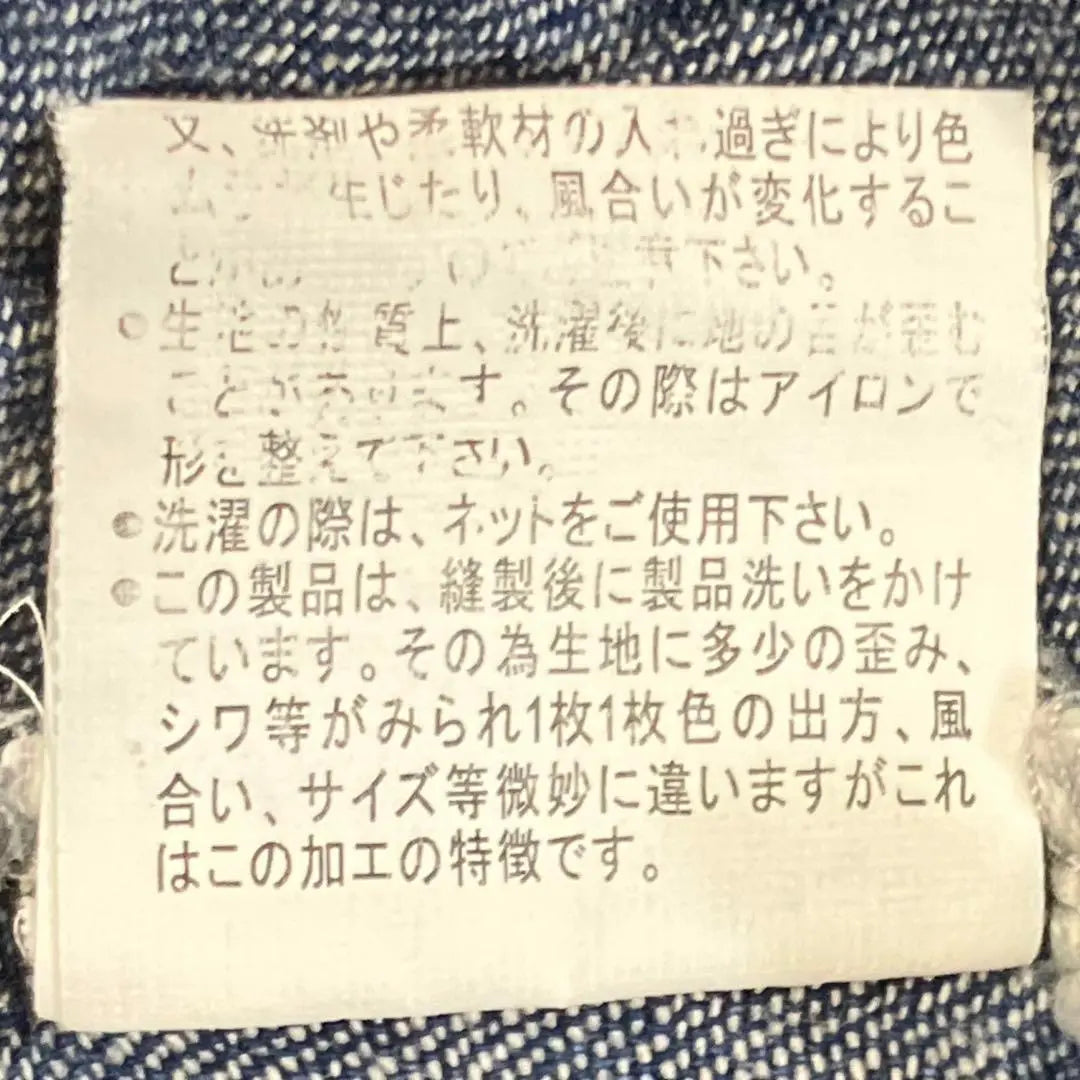 又、洗剤や柔軟材の入れ過ぎにより色
生じたり、風合いが変化するこ
下さい。
●生地の性質上、洗濯後に地の目が歪む
ことがあります。その際はアイロンで
形を整えて下さい。
●洗濯の際は、ネットをご使用下さい。
●この製品は、縫製後に製品洗いをかけ
ています。その為生地に多少の歪み、
シワ等がみられ1枚1枚色の出方、風
合い、サイズ等微妙に違いますがこれ
はこの加工の特徴です。